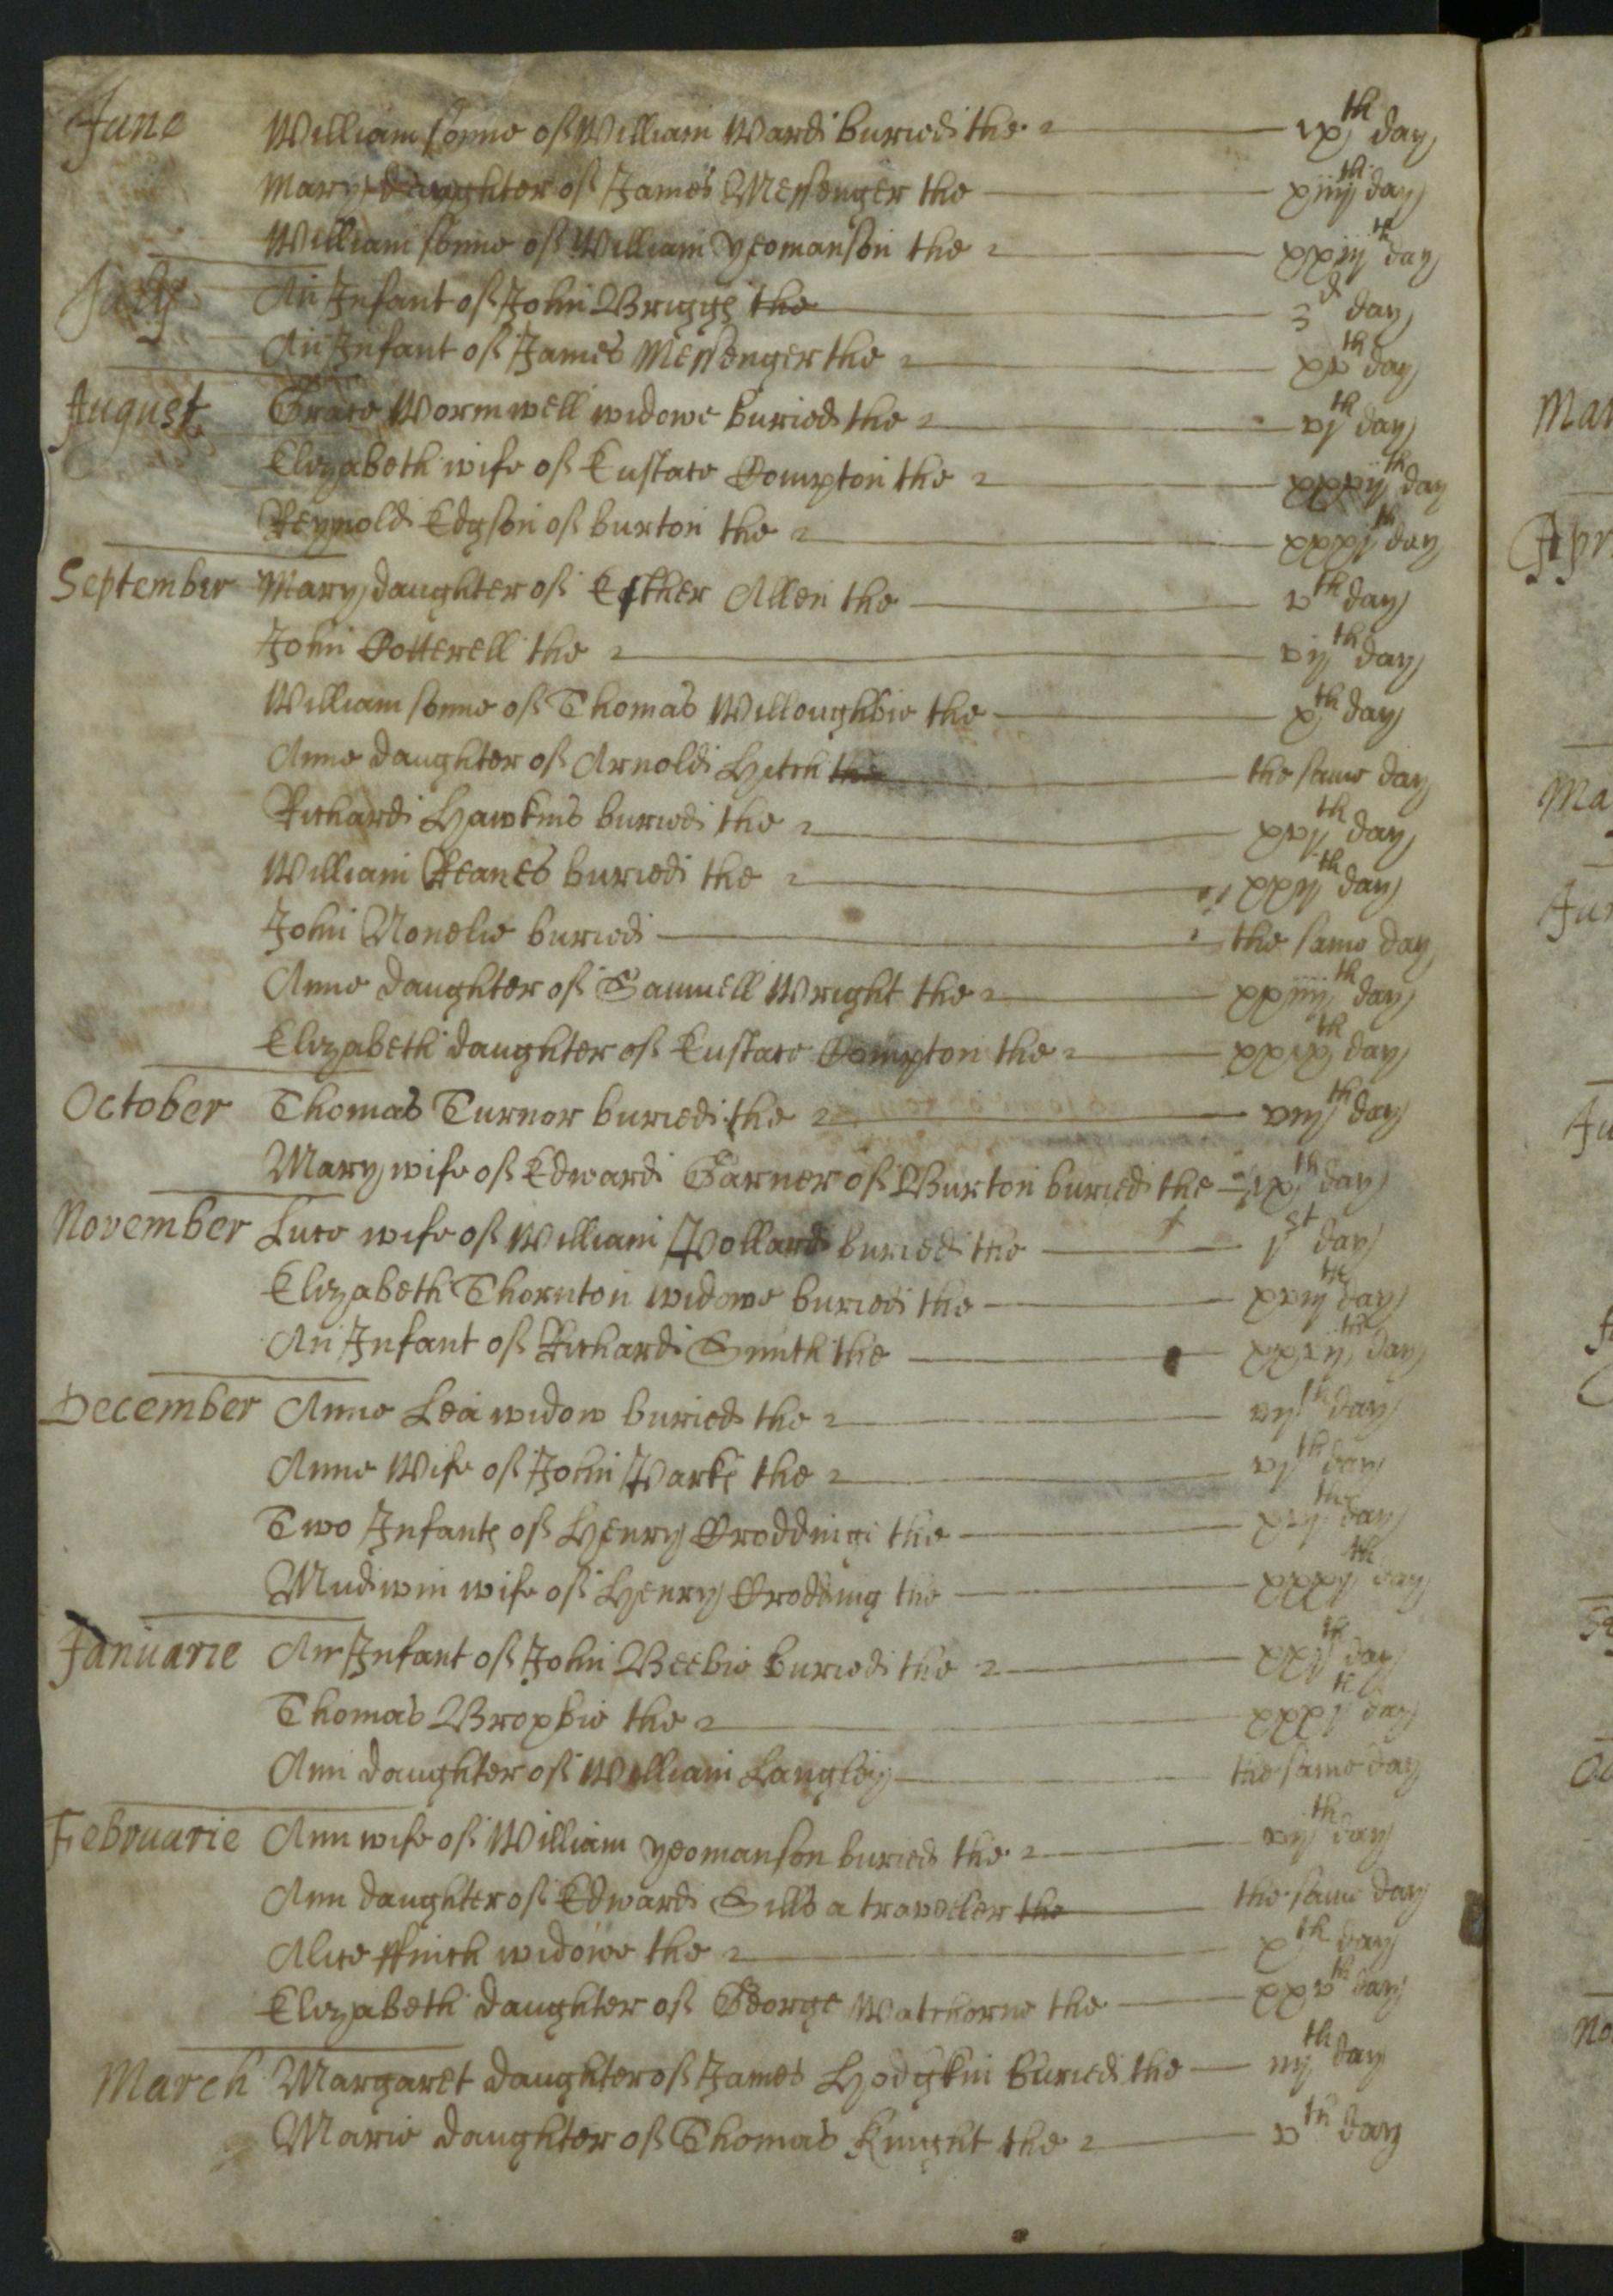 June William sonne of William Ward buried the ix th day
Mary daughter of James Messenger the xiiij th day
William sonne of William Yeomanson the xxiij th day
July An Infant of John Briggs the 3 d day
An Infant of James Messenger the xx th day
August Grace Wormwell widowe buried the vj th day
Elizabeth wife of Eustace Compton the day
Reynold Edgson of burton the xxxj th day
September Mary daughter of Esther Allen the v th day
John Cotterell the vij th day
William sonne of Thomas Willoughbie the x th day
Anne daughter of Arnold Hitch the the same day
Richard Hawkins buried the xvj th day
William buried the xxij th day
John Nonelie buried the same day
Anne daughter of Samuell Wright the xxiiij th day
Elizabeth daughter of Eustace Compton the day
October Thomas Turnor buried the viij th day
Mary wife of Edward Garner of Burton buried the ix th day
November Luce wife of William Pollard buried the 1 st day
Elizabeth Thornton widowe buried the xviij th day
An Infant of Richard Smith the day
December Anne Lea widow buried the th day
Anne Wife of John Parks the vj th day
Two Infants of Henry Crodding the day
Mudwin wife of Henry Crodding the xxxj th day
Januarie An Infant of John Beebie buried the xxj th day
Thomas Broxbie the xxxj th day
Ann daughter of William Langley the same day
Februarie Ann wife of William yeomanson buried the vij th day
Ann daughter of Edward Sills a traveller the the same day
Alice ffinch widowe the x th day
Elizabeth daughter of George Watchorne the xxv th day
March Margaret daughter of James Hodgkin buried the iij th day
Marie daughter of Thomas Knight the v th day
Mar
Apr
Ma
Jun
Ju
No